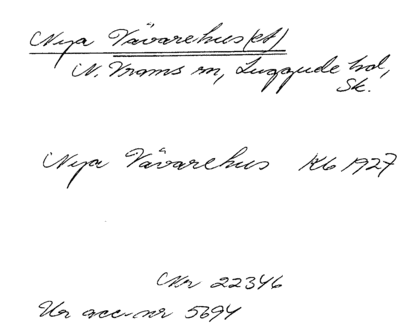 Nya Vävarehus(et)
N. Vrams sn, Luggude hd,
Sk.
Nya Vävarehus Kb 1927
Nr 22346
Ur acc-nr 5694